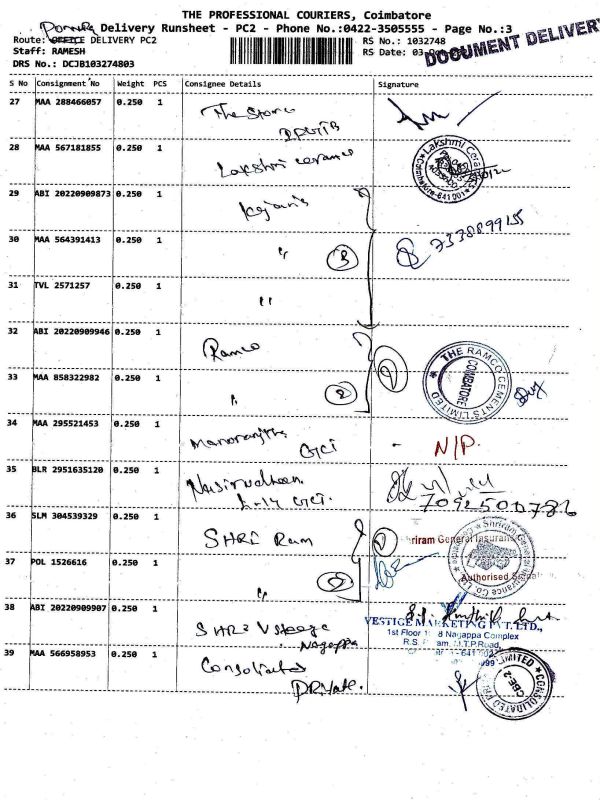 THE PROFESSIONAL COURIERS, Coimbatore
Delivery Runsheet - PC2 - Phone No.:0422-3505555 - Page No.:3
Route: OFFICE DELIVERY PC2
RS No.: 1032748
Staff: RAMESH
RS Date: 03-
DOCUMENT DELIVERY
DRS No.: DCJB103274803
S No Consignment No Weight PCS Consignee Details Signature
27 MAA 288466057 0.250 1 The Store
28 MAA 567181855 0.250 1 Lakshmi ceramics
Lakshmi Cera
Coimbatore-641 001
29 ABI 20220909873 0.250 1 Kajaris
30 MAA 564391413 0.250 1 " 3
7338899155
31 TVL 2571257 0.250 1 "
32 ABI 20220909946 0.250 1 Ramco
THE RAMCO CEMENTS LIMITED
COIMBATORE
33 MAA 858322982 0.250 1 " 2
34 MAA 295521453 0.250 1 Manoranjitha
GCI - N/P.
35 BLR 2951635120 0.250 1
L-14 GCI.
7092500786
36 SLM 304539329 0.250 1 SHRI Ram
Shriram General Insurance Co. Ltd.
hriram General Insuran
37 POL 1526616 0.250 1 " 2
Authorised Signat
38 ABI 20220909907 0.250 1 SHRI
Nagappa
VESTIGE MARKETING PVT.LTD.,
1st Floor 8 Nagappa Complex
R.S. am, M.T.P.Road,
641 002
39 MAA 566958953 0.250 1 Consoliated
Private.
CONSOLIDATED
LIMITED
CBE-2